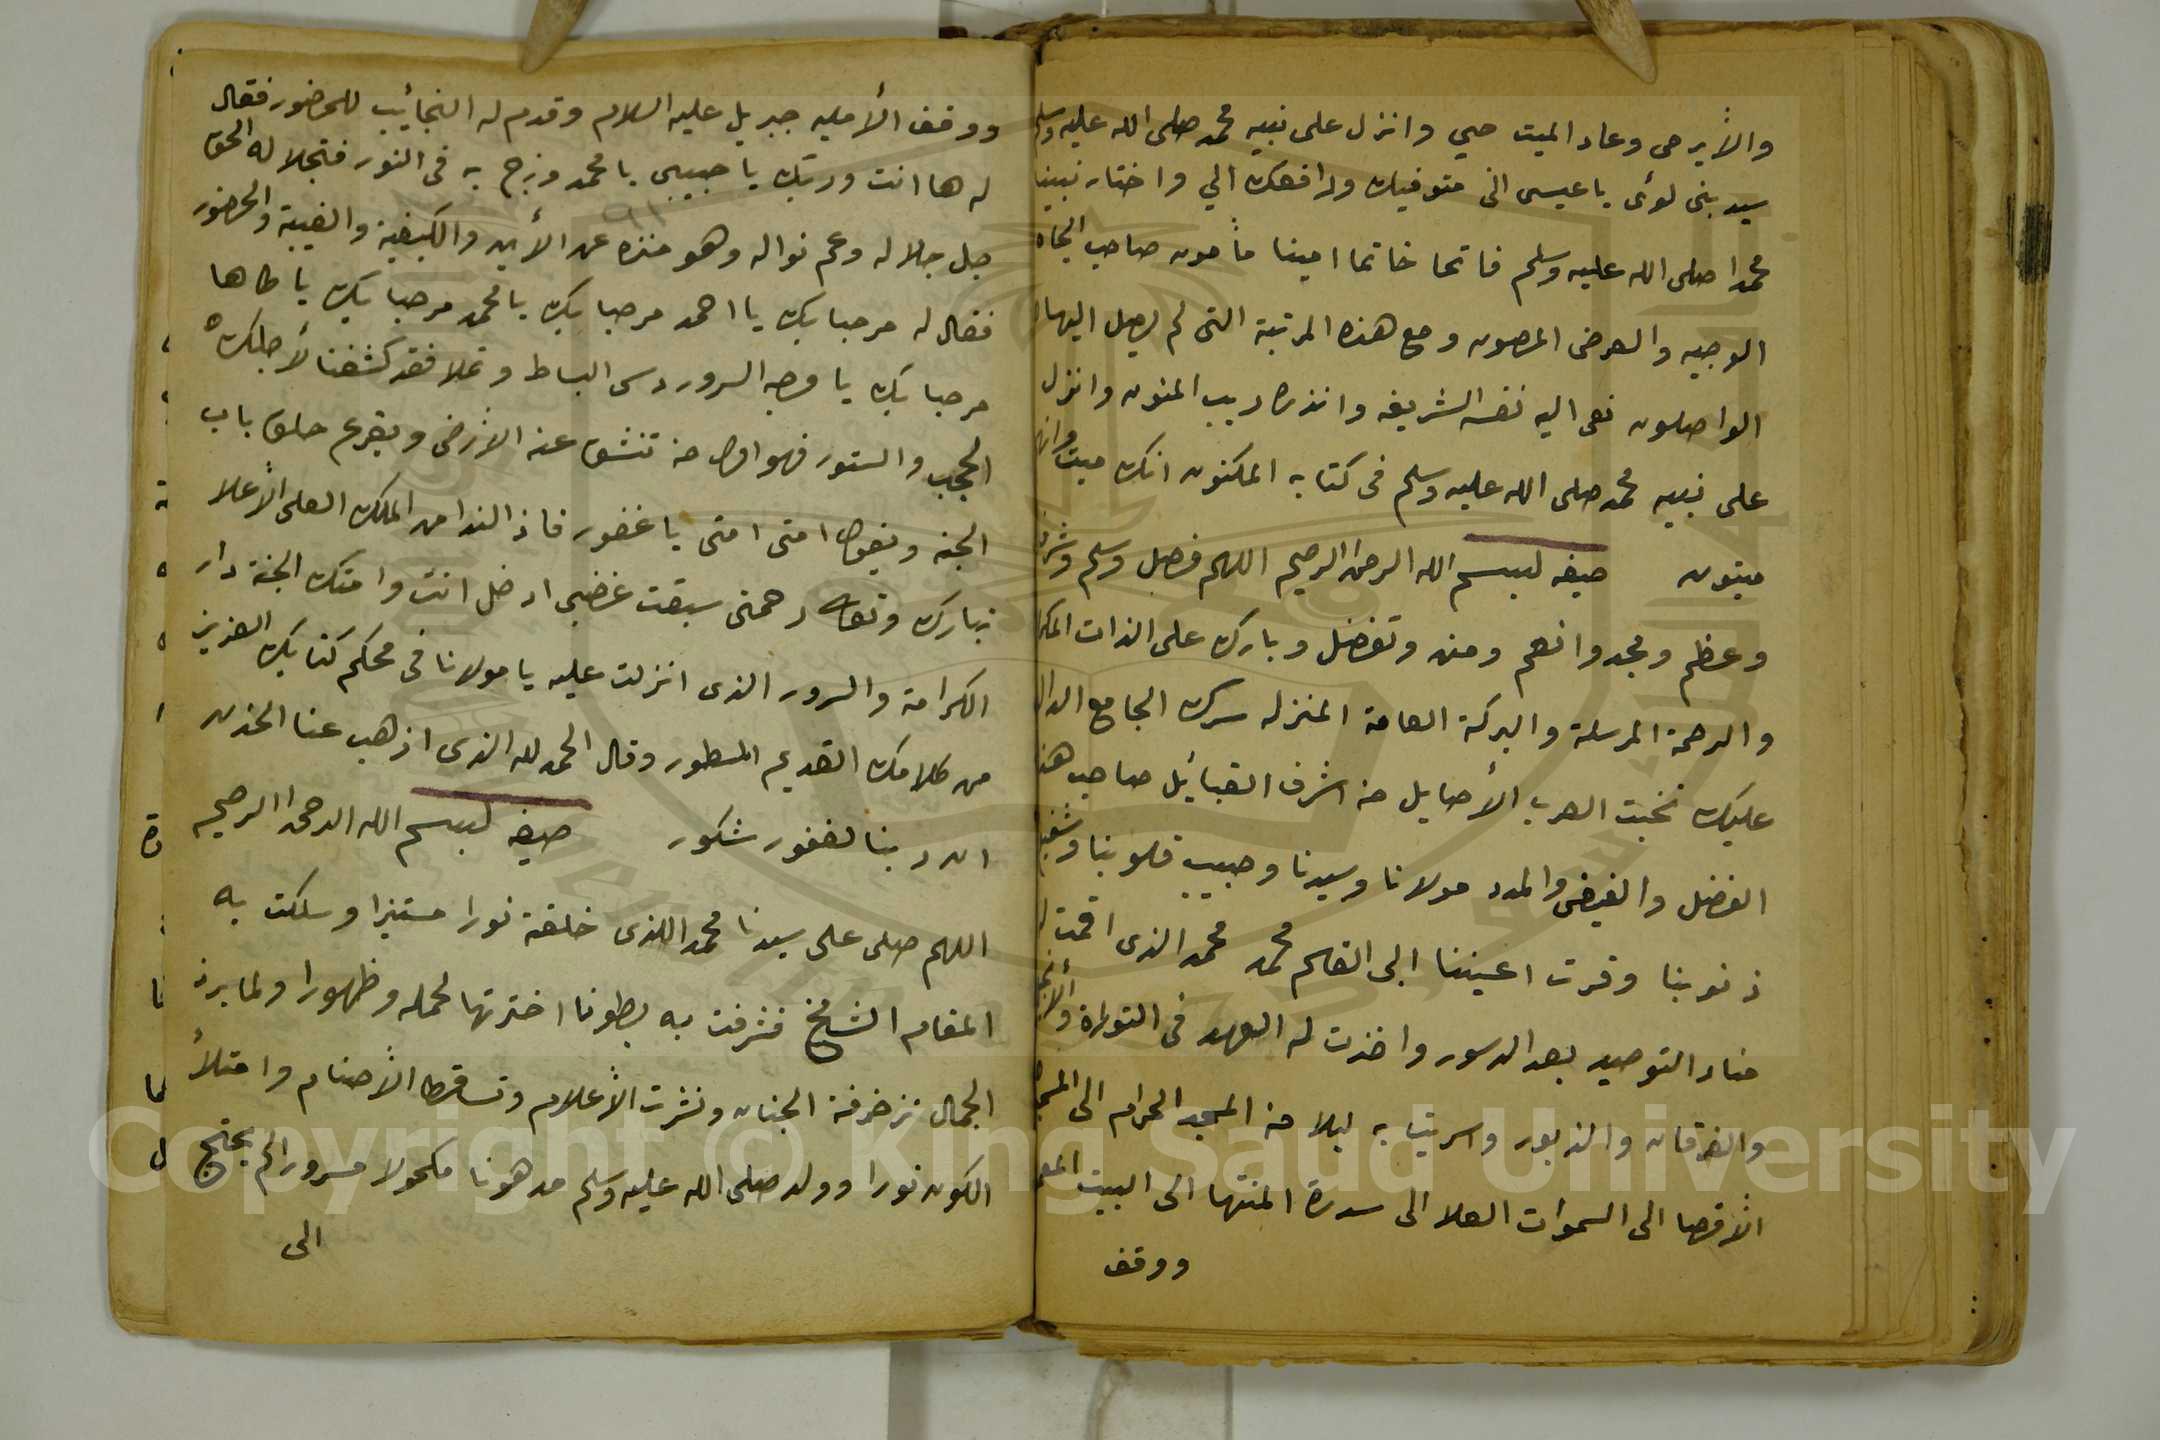 والأبرص وعاد الميت حي وانزل على نبيه محمد صلى الله عليه وسلم
سيد بنى لوئى يا عيسى انى متوفيك ورافعك الي واختار نبينا
محمدا صلى الله عليه وسلم فاتحا خاتما امينا مأمون صاحب الجاه
الوجيه والعرض المصون ومع هذه المرتبة التى لم يصل اليها
الواصلون نعى اليه نفسه الشريفه وانذره ريب المنون وانزل
على نبيه محمد صلى الله عليه وسلم فى كتابه المكنون انك ميت وانهم
ميتون صيغه لبسم الله الرحمن الرحيم اللهم فصل وسلم وشرف
وعظم ومجد وانعم ومن وتفضل وبارك على الذات
والرحمة المرسلة والبركة العامة المنزله سرك الجامع الدال
عليك نخبت العرب الأصايل من اشرف القبائل صاحب هذا
الفضل والفيض والمدد مولانا وسيدنا وحبيب قلوبنا وشفيع
ذنوبنا وقرت اعيننا ابى القسم محمد محمد الذى اقمت
منار التوحيد بعد الدسور واخذت له العهد فى التوراة
والفرقان والزبور واسريت به ليلا من المسجد الحرام الى
الأقصا الى السموات العلا الى سدرة المنتها الى البيت
ووقف
ووقف الأمين جبريل عليه السلام وقدم له النجائب للحضور فقال
له ها انت وربك يا حبيبى يا محمد وزج به فى النور فتجلا له الحق
جل جلاله وعم نواله وهو منزه عن الأين والكيفية والغيبة والحضور
فقال له مرحبا بك يا احمد مرحبا بك يا محمد مرحبا بك يا طاها
مرحبا بك يا وجه السرور دس البساط وتملا فقد كشفنا لأجلك
الحجب والستور فهو اول من تنشق عنه الأرض ويقرع حلق باب
الجنه ويقول امتى امتى يا غفور فاذ الندا من الملك العلى الأعلا
تبارك وتعالى رحمتى سبقت غضبى ادخل انت وامتك الجنة دار
الكرامة والسرور الذى انزلت عليه يا مولانا فى محكم كتابك العزيز
من كلامك القديم المسطور وقال الحمد لله الذى اذهب عنا الحزن
ان ربنا لغفور شكور صيغه لبسم الله الرحمن الرحيم
اللهم صلى على سيدنا محمد اللذى خلقة نورا مستنيرا وسلكت به
المقام الشامخ فشرفت به بطونا اخترتها لحمله وظهورا ولما برز
الجمال تزخرفة الجنان ونشرت الأعلام وتساقط الأصنام وامتلأ
الكون نورا وولد صلى الله عليه وسلم مدهونا مكحولا مسرورا لم يحتج
الى
Copyright © King Saud University